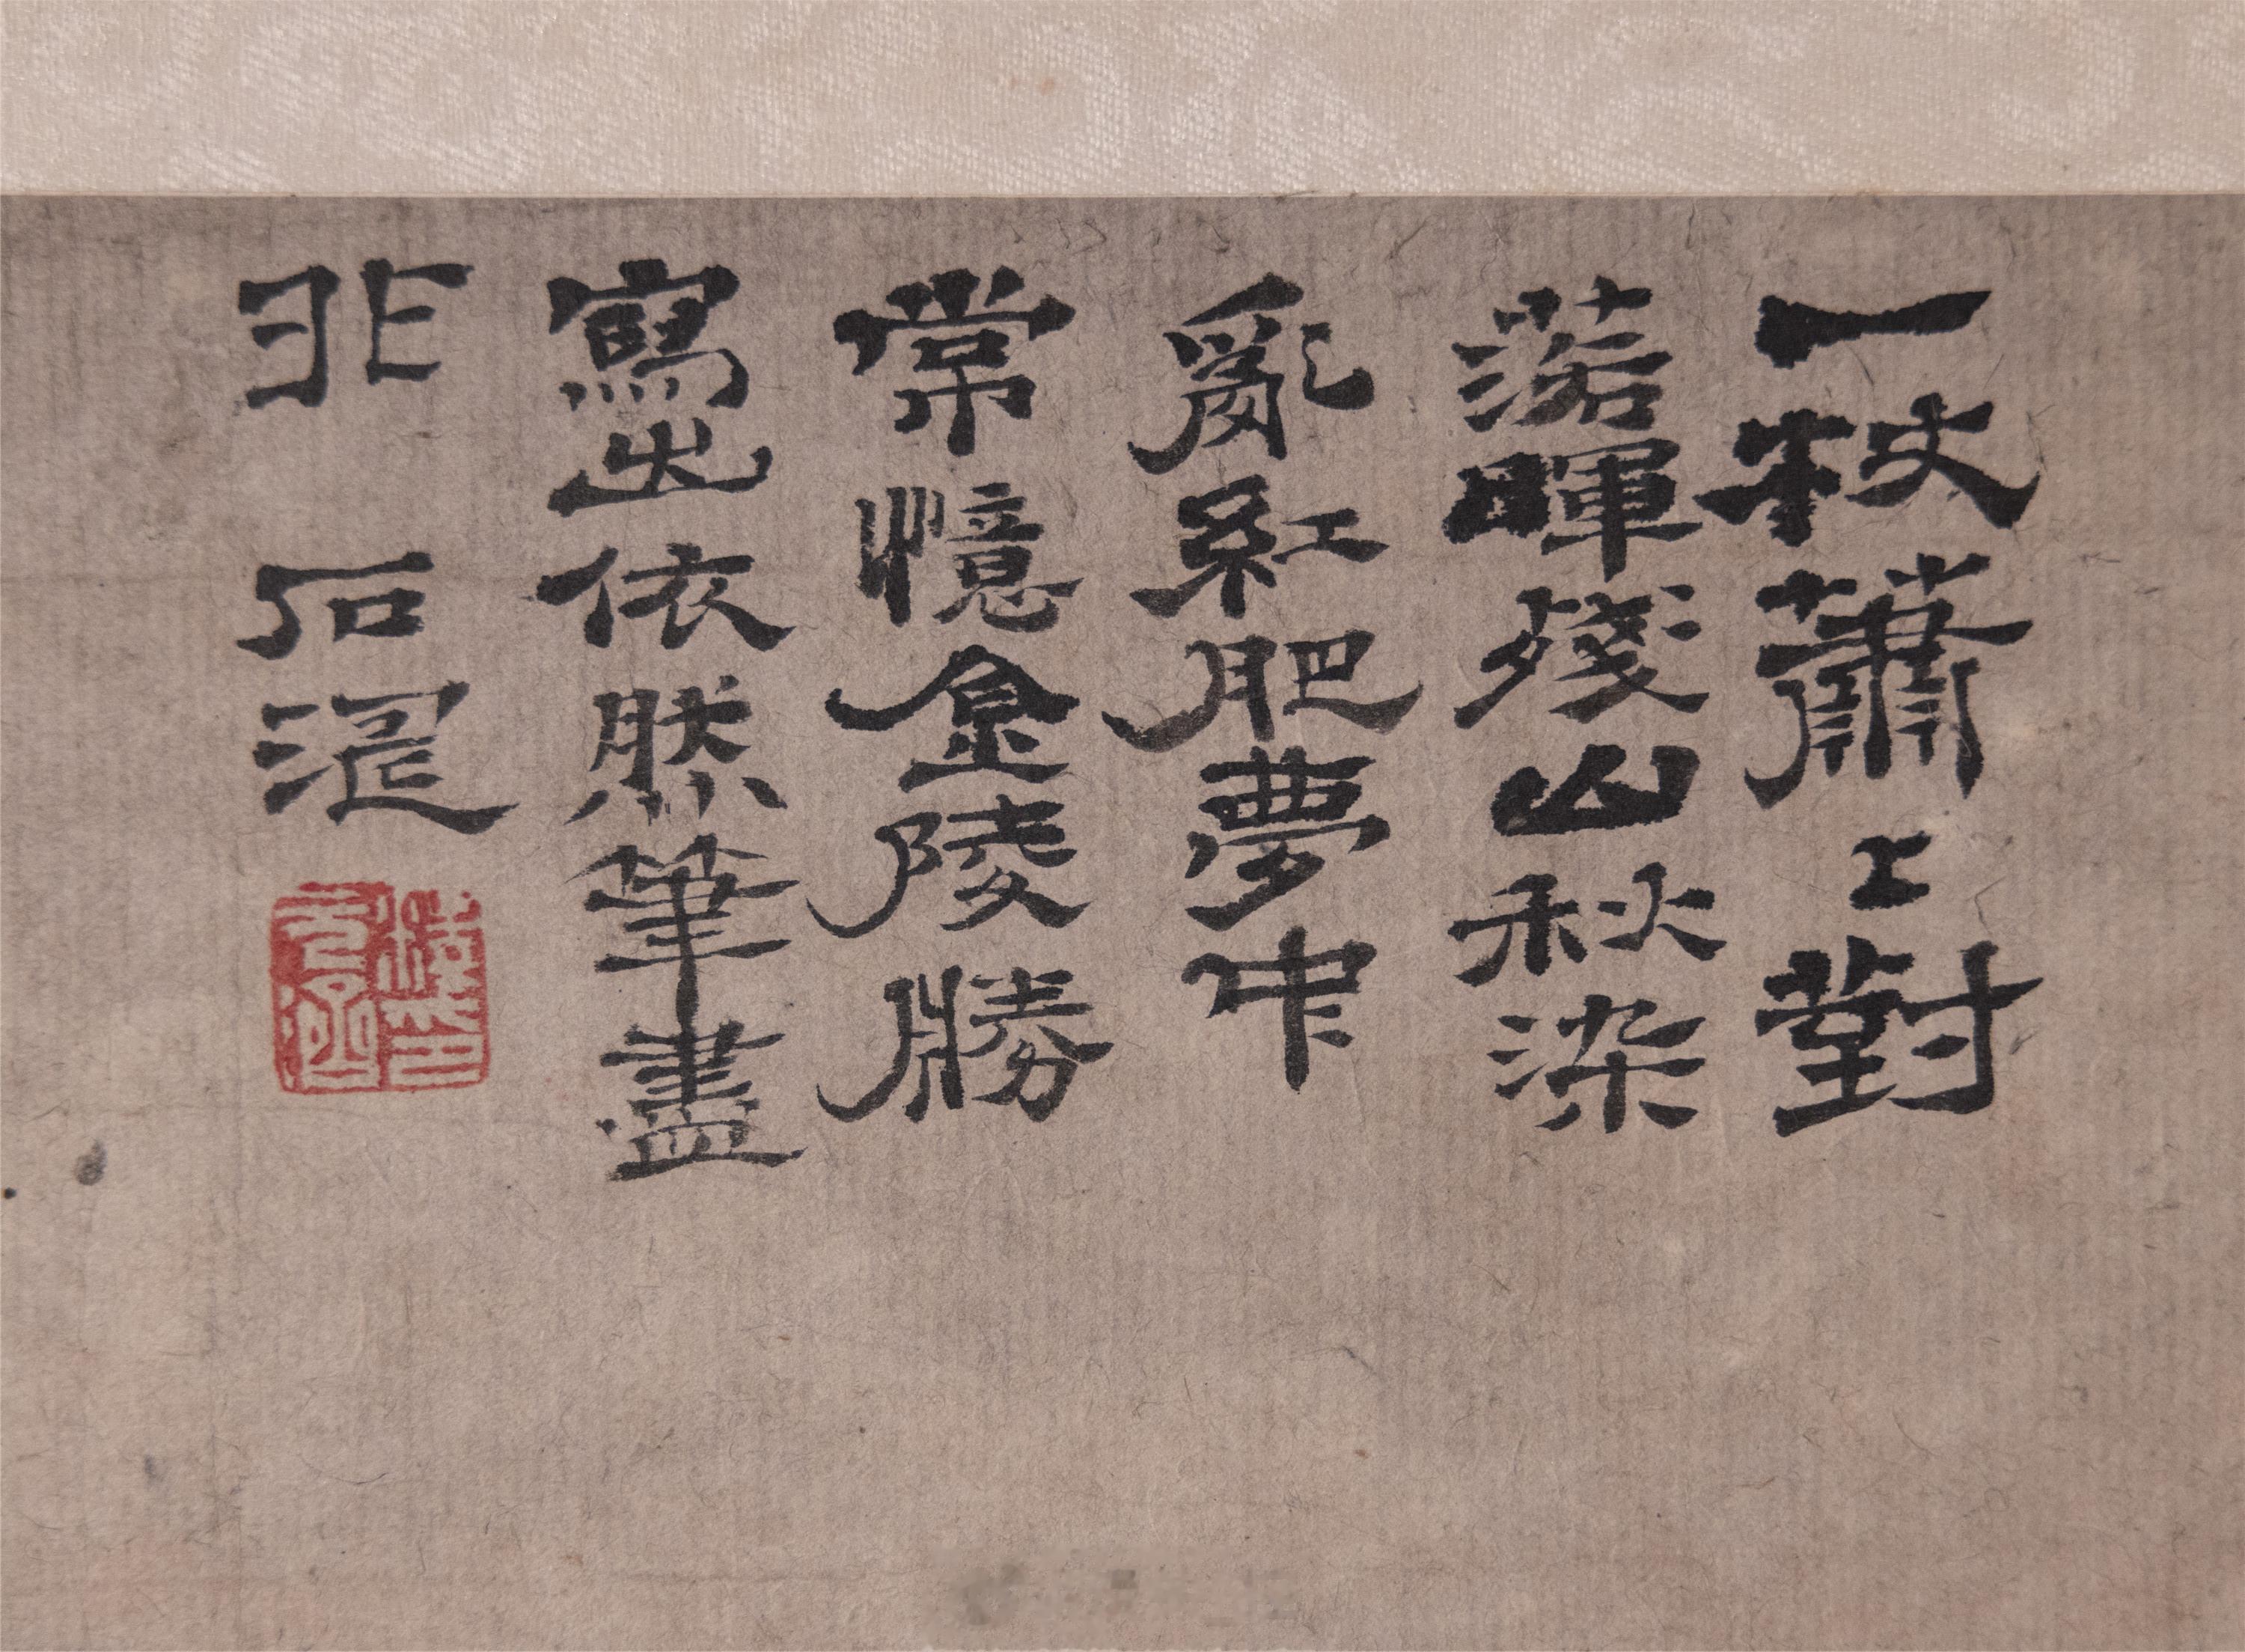 一杖蕭〻對
落暉殘山秋染
亂紅肥夢中
常憶金陵勝
寫出依然筆盡
非 石濤